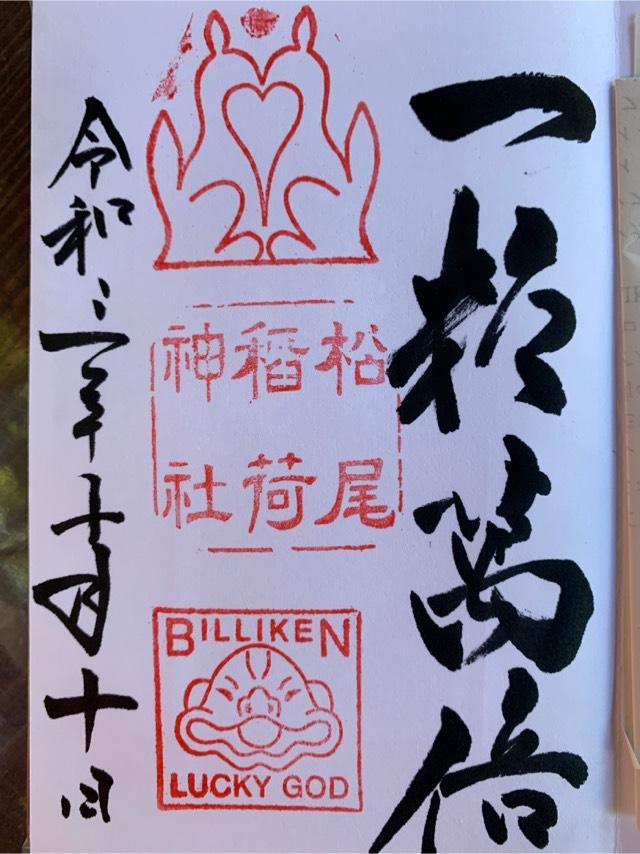 一粒萬倍
松尾
稲荷
神社
BILLIKEN
LUCKY GOD
令和三年十一月十日